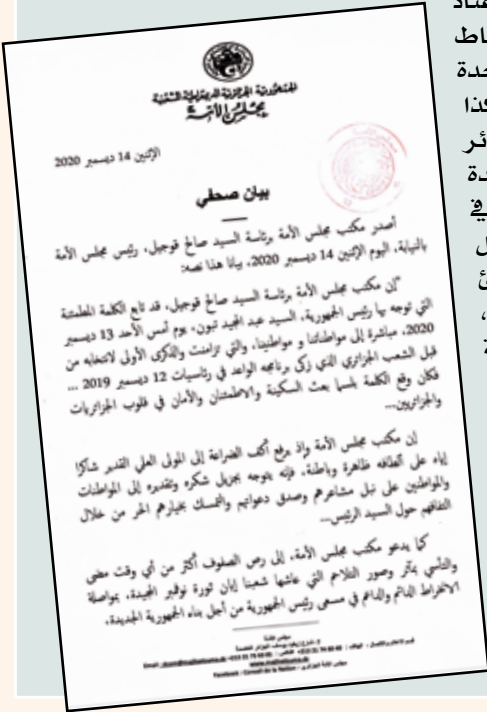 الجمهورية الجزائرية الديمقراطية الشعبية
مجلس الأمة
الإثنين 14 ديسمبر 2020
بيان صحفي
أصدر مكتب مجلس الأمة برئاسة السيد صالح قوجيل، رئيس مجلس الأمة
بالنيابة، اليوم الإثنين 14 ديسمبر 2020، بيانا هذا نصه:
"إن مكتب مجلس الأمة برئاسة السيد صالح قوجيل، قد تابع الكلمة المطمئنة
التي توجه بها رئيس الجمهورية، السيد عبد المجيد تبون، يوم أمس الأحد 13 ديسمبر
2020، مباشرة إلى مواطناتنا و مواطنينا، والتي تزامنت والذكرى الأولى لانتخابه من
قبل الشعب الجزائري الذي زكى برنامجه الواعد في رئاسيات 12 ديسمبر 2019 ...
فكان وقع الكلمة بلسما بعث السكينة والاطمئنان والأمان في قلوب الجزائريات
والجزائريين...
إن مكتب مجلس الأمة وإذ يرفع أكف الضراعة إلى المولى العلي القدير شاكرا
إياه على ألطافه ظاهرة وباطنة، فإنه يتوجه بجزيل شكره وتقديره إلى المواطنات
والمواطنين على نبل مشاعرهم وصدق دعواتهم والتمسك بخيارهم الحر من خلال
التفافهم حول السيد الرئيس...
كما يدعو مكتب مجلس الأمة، إلى رص الصفوف أكثر من أي وقت مضى
والتأسي بمآثر وصور التلاحم التي عاشها شعبنا إبان ثورة نوفمبر المجيدة، بمواصلة
الانخراط الدائم والداعم في مسعى رئيس الجمهورية من أجل بناء الجمهورية الجديدة،
مجلس الأمة
Facebook : Conseil de la Nation